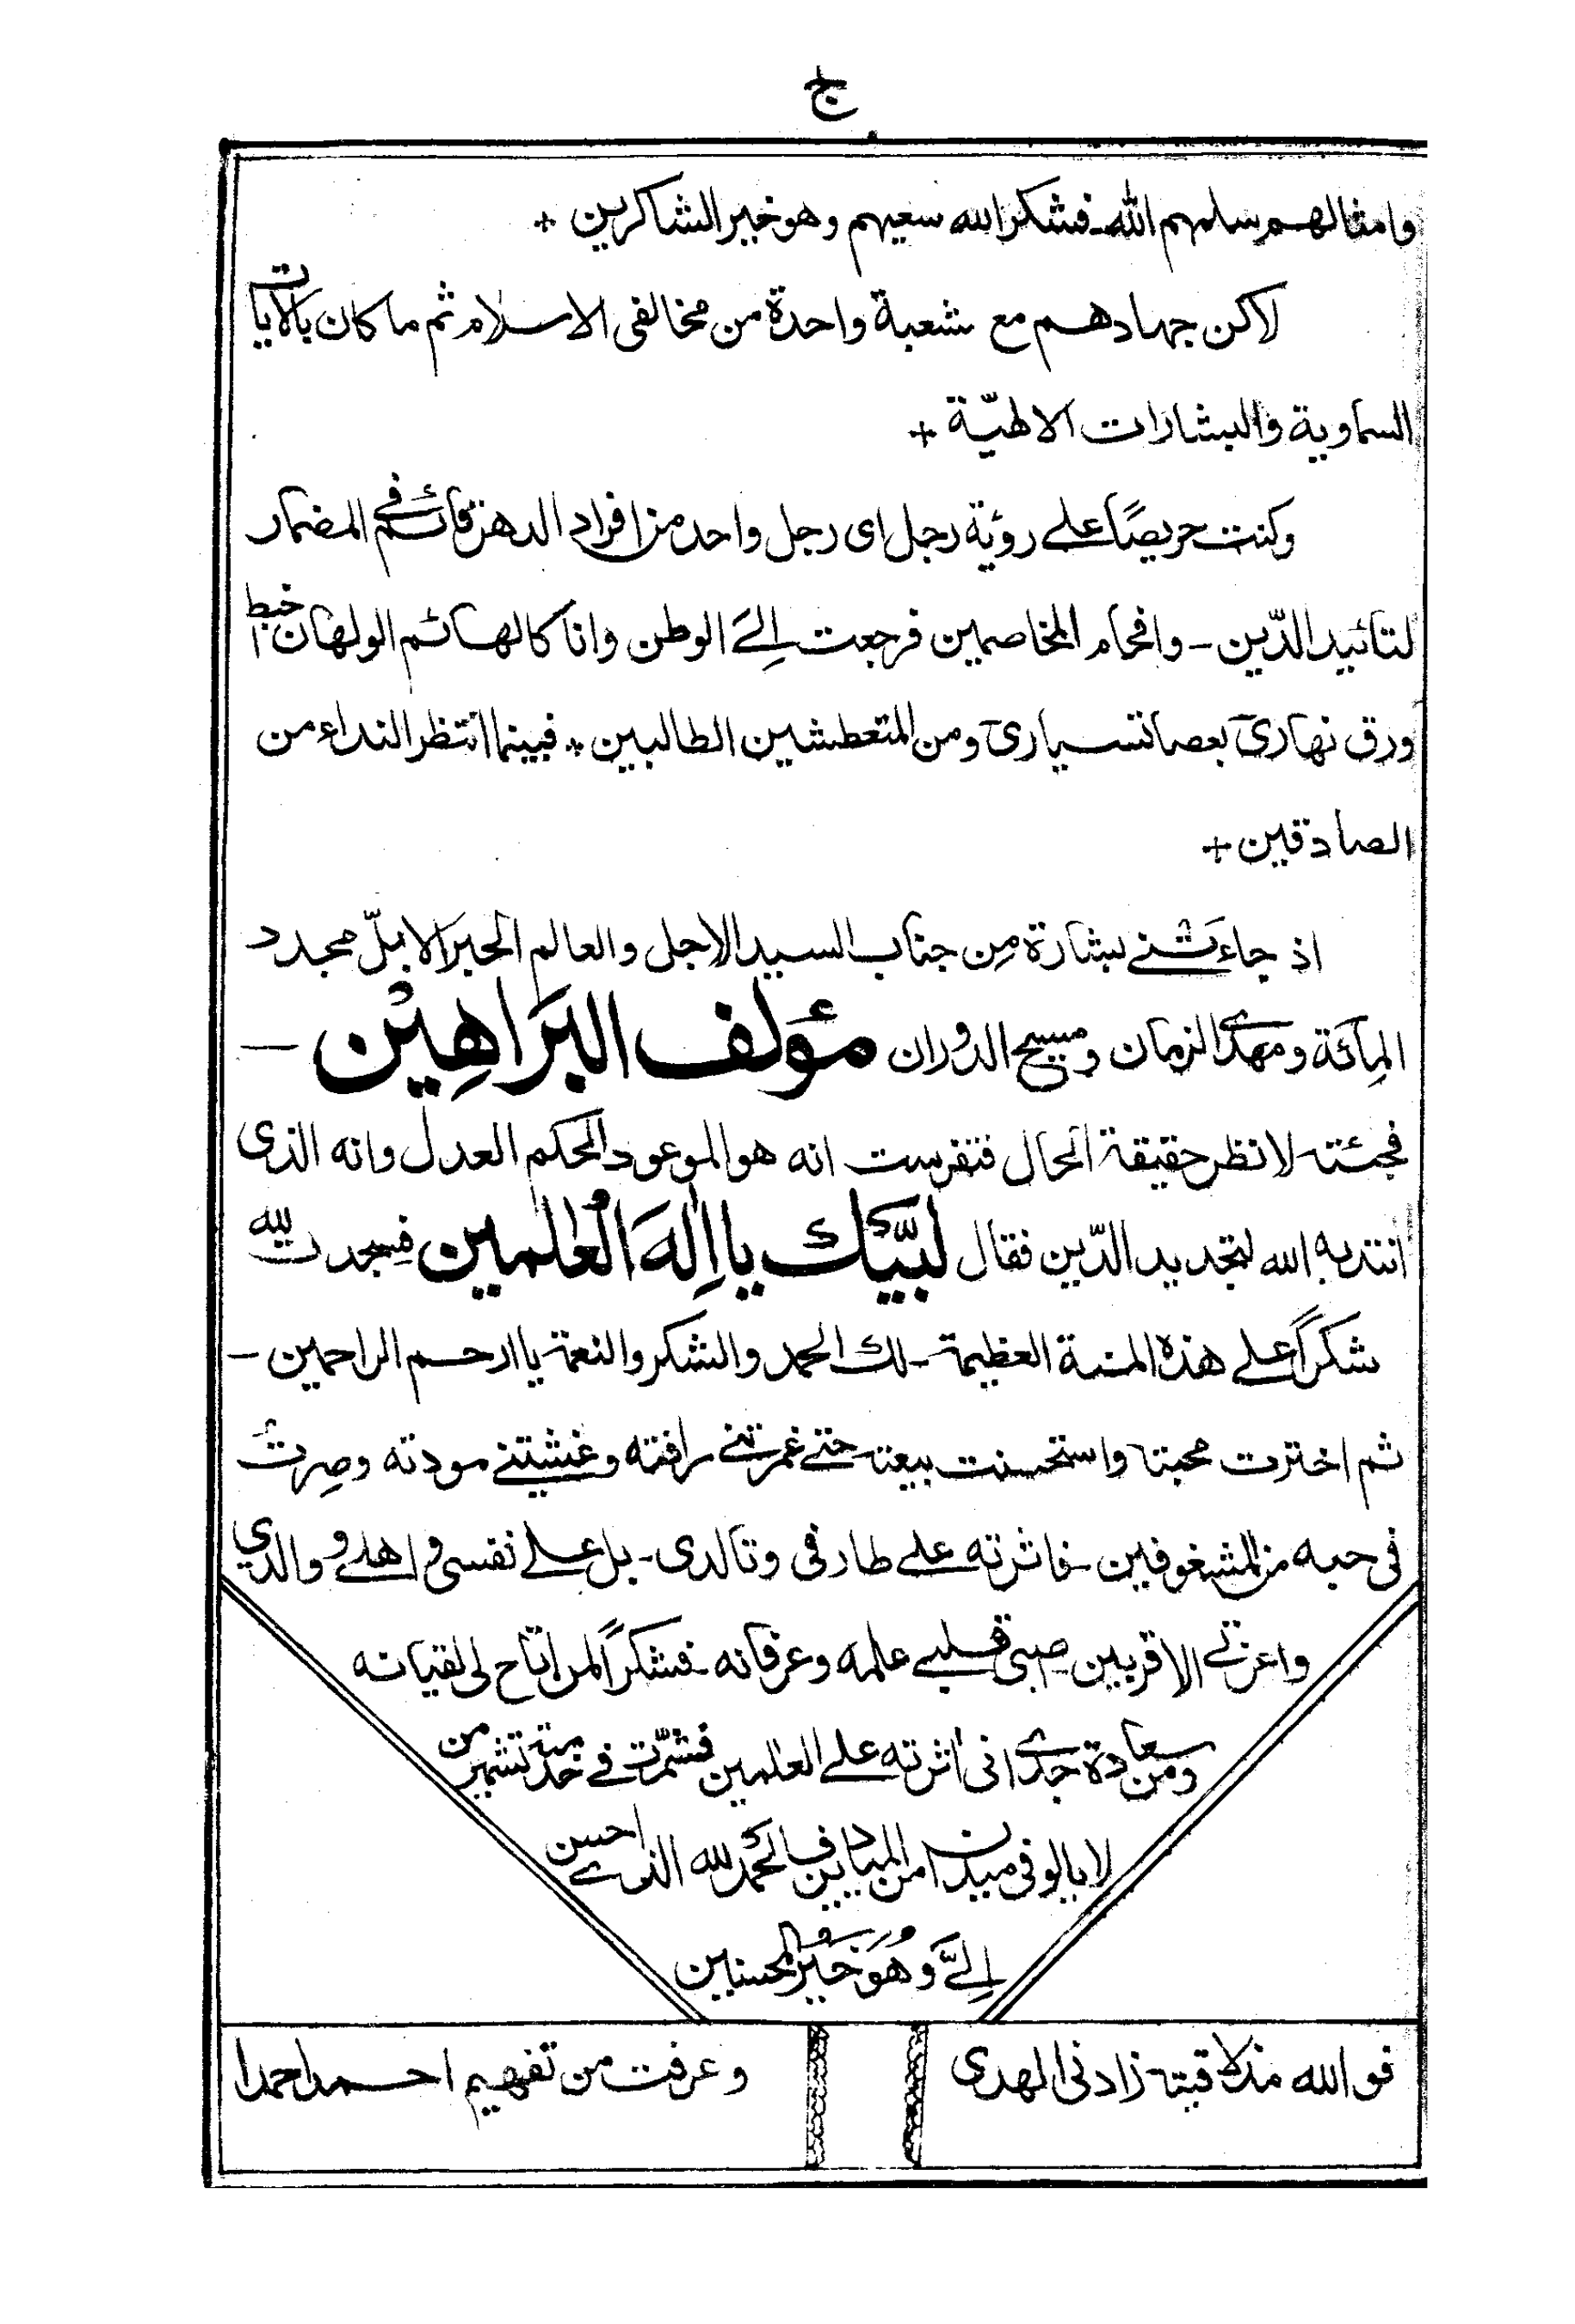 ج
وامثالهم سلمهم الله ۔ فشكر الله سعيهم وهو خير الشاكرين +
لاكن جهادهم مع شعبة واحدة من مخالفى الاسلام ثم ما كان بالايات
السماوية والبشارات الالهيّة +
وكنت حريصًا على رؤية رجل اى رجل واحد من افراد الدهر قائم فى المضمار
لتائيد الدّين ــ وافحام المخاصمين فرجعت الى الوطن وانا كالهائم الولهان اخبط
ورق نهارى بعصا تسيارى ومن المتعطشين الطالبين + فبينما انتظر النداء من
الصادقين +
اذ جاءتنى بشارة مِن جناب السيد الاجل والعالم الحبر الابلّ مجدد
المِائة ومهدى الزمان ومسيح الدوران مؤلف البَرَاهِيْن ــ
فجئته لانظر حقيقة الحال فتفرست انه هو الموعود الحكم العدل وانه الذى
انتدبه الله لتجديد الدّين فقال لبّيك يا اِلٰهَ العٰلمين فسجدت لله
شكرًا على هذه المنة العظيمة ــ لك الحمد والشكر والنعمة يا ارحم الراحمين ــ
ثم اخترت محبته واستحسنت بيعته حتى غمرتنى رافته وغشيتنى مودته وصِرتُ
فى حبه من المشغوفين ــ فاثرته على طارفى وتالدى ــ بل على نفسى و اهلى و والدى
واعزتى الاقربين ــ اصبى قلبى علمه وعرفانه ــ فشكرًا لمن اتاح لى لقيانه
ومن سعادة جدى انى اٰثرته على العٰلمين فشمّرت فى خدمته تشمير من
لا يالو فى ميدان من الميادين فالحمد لله الذى احسن
اِلىَّ وَهُوَ خَيْرُ المحسنين
فو الله مذ لاقيته زادنى الهدى
وعرفت من تفهيم احمد احمدا